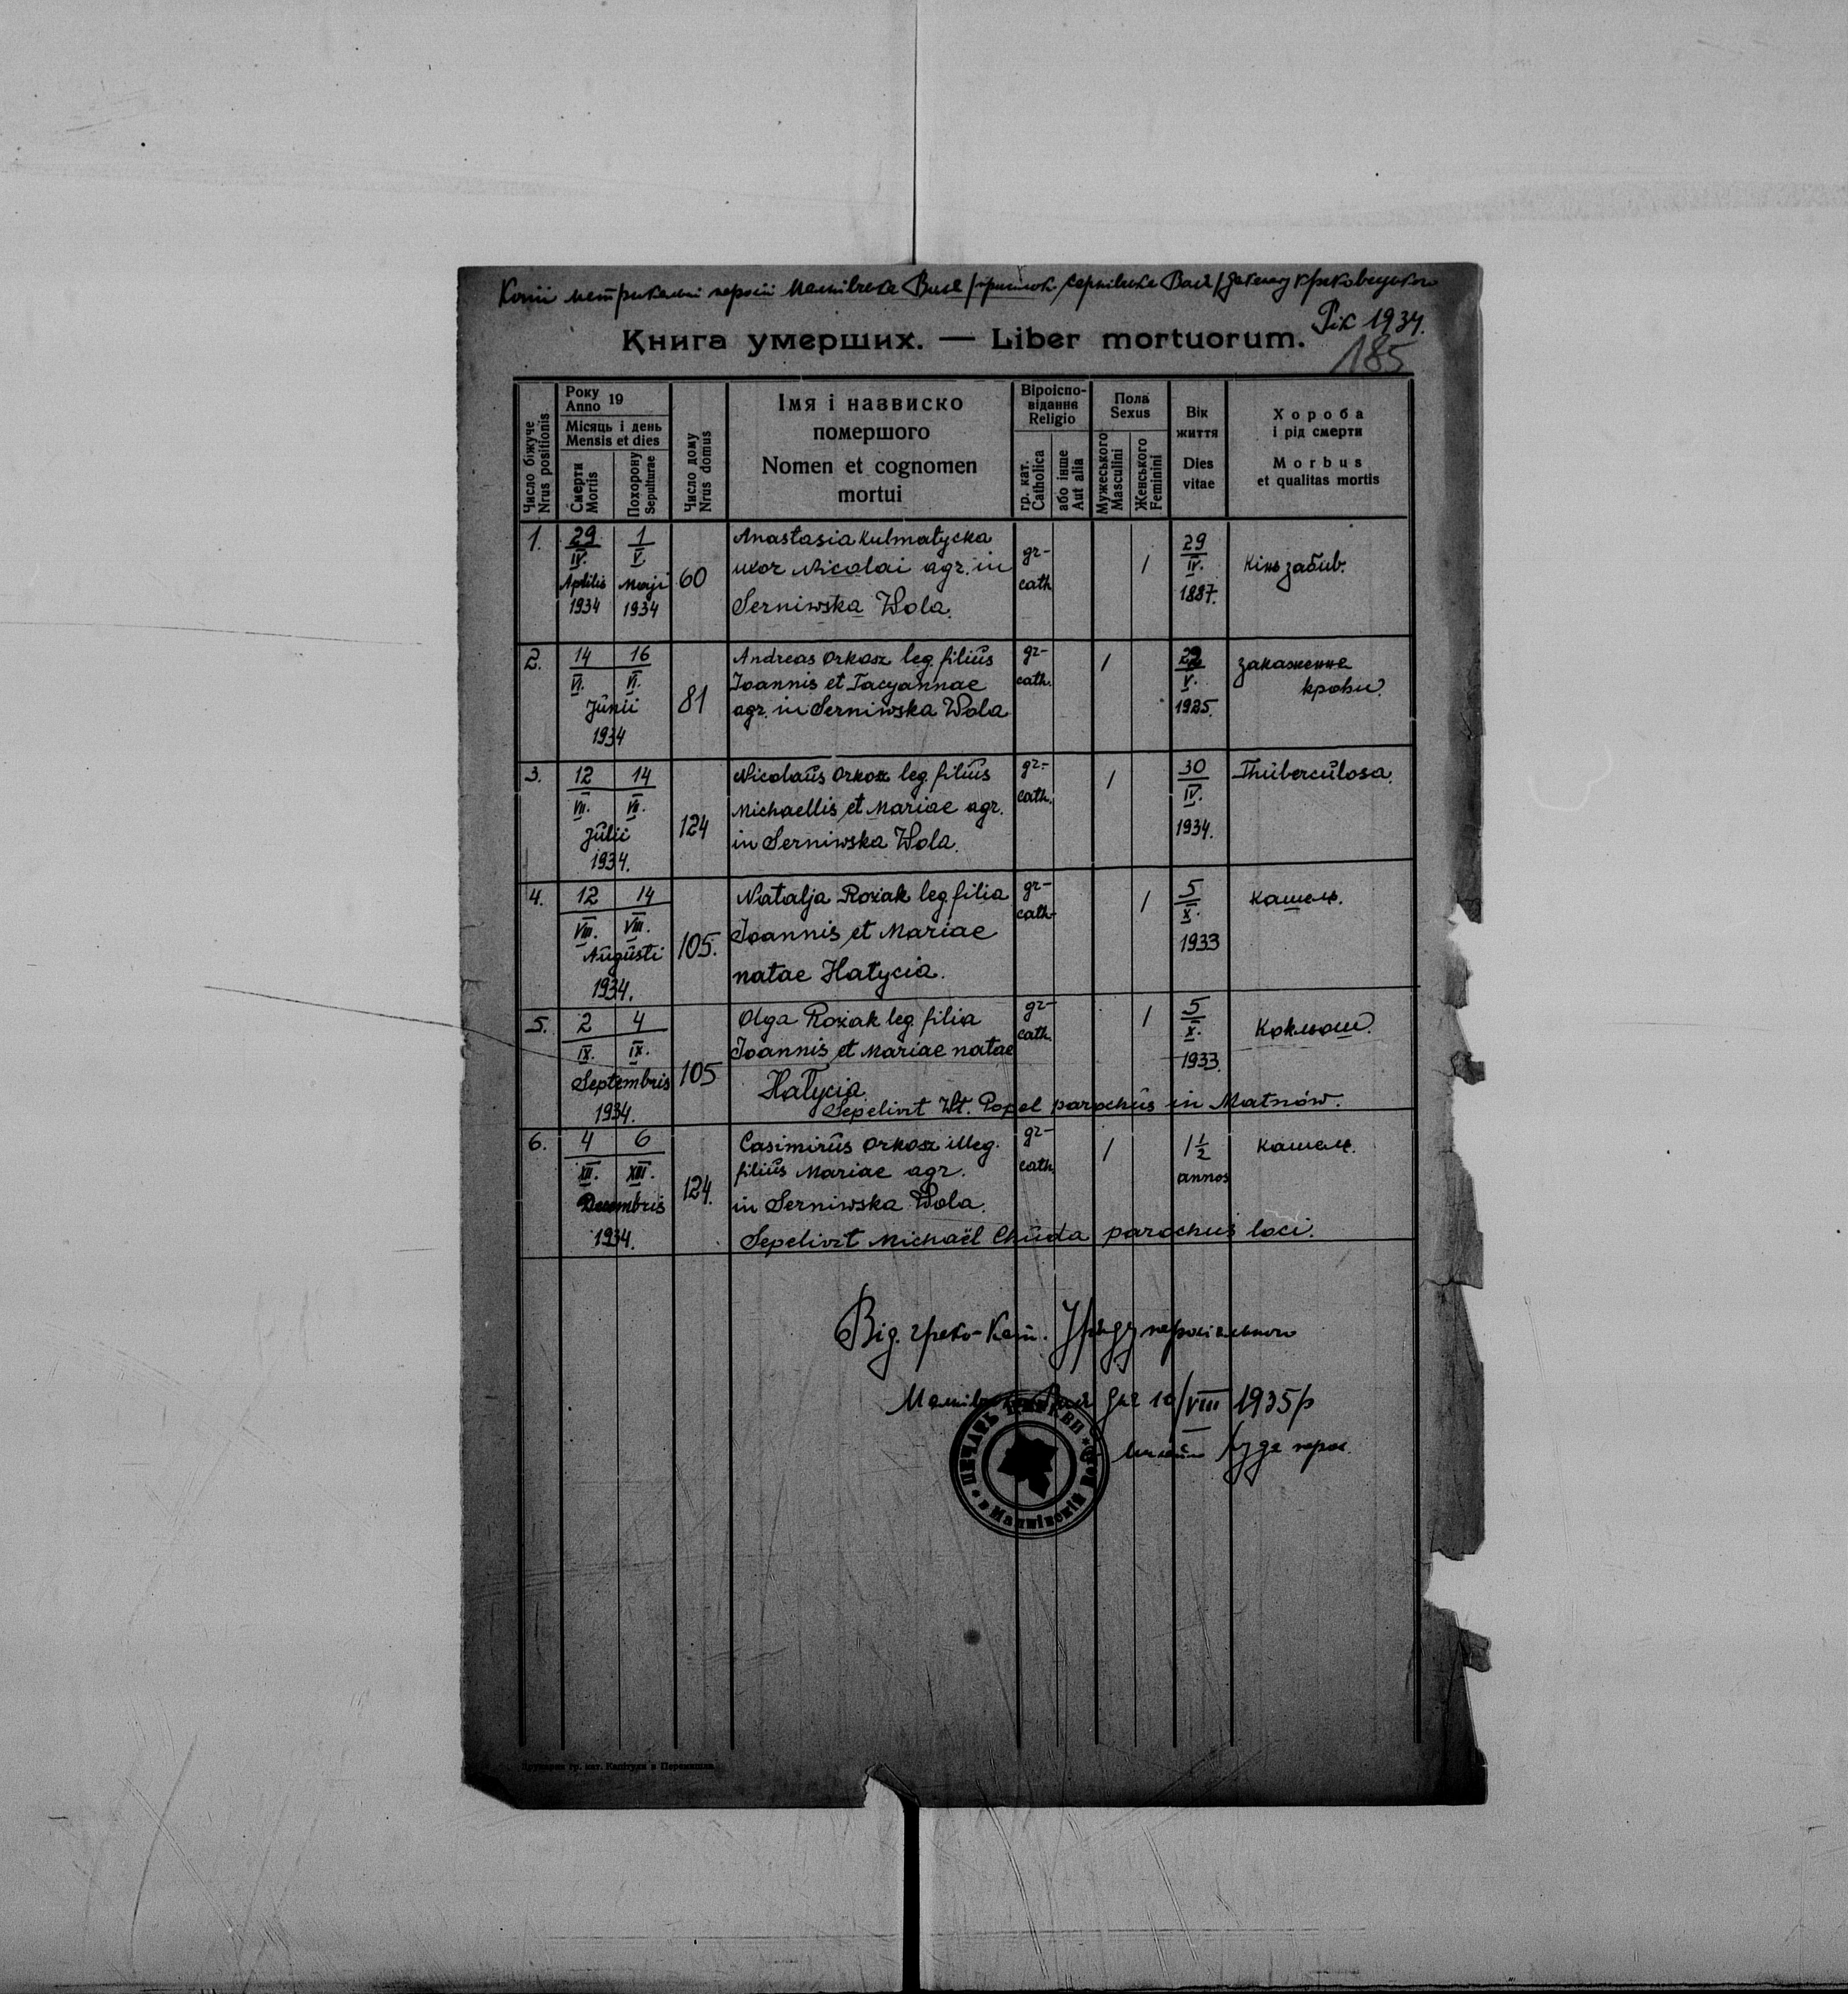 Копії метрикальні парохії Малнівска Воля / присілок Сернівска Воля / деканату краковецького
Рік 1934.
Книга умерших. — Liber mortuorum.
185
Число біжуче
Nrus positionis
Року
Anno 19
Місяць і день
Mensis et dies
Смерти
Mortis
Похорону
Sepulturae
Число дому
Nrus domus
Імя і назвиско
помершого
Nomen et cognomen
mortui
Віроіспо-
відання
Religio
гр. кат.
Catholica
або інше
Aut alia
Пола
Sexus
Мужеського
Masculini
Женського
Feminini
Вік
життя
Dies
vitae
Хороба
і рід смерти
Morbus
et qualitas mortis
1. 29 IV. Aprilis 1934 1 V. Maji 1934 60
Anastasia Kulmatycka
uxor Nicolai agr. in
Serniwska Wola.
gr-cath 1 29 IV. 1887. Кінь забив.
2. 14 VI. 16 VI. Junii 1934 81
Andreas Orkosz leg. filius
Joannis et Tacyannae
agr. in Serniwska Wola
gr-cath. 1 V. 1925. закаженне крови.
3. 12 VII. 14 VII. Julii 1934. 124
Nicolaus Orkosz leg. filius
Michaellis et Mariae agr.
in Serniwska Wola.
gr-cath. 1 30 IV. 1934. Thuberculosa.
4. 12 VIII. 14 VIII. Augusti 1934. 105.
Natalja Roxak leg. filia
Joannis et Mariae
natae Hatycia.
gr-cath. 1 5 X. 1933 кашель.
5. 2 IX. 4 IX. Septembris 1934. 105
Olga Roxak leg. filia
Joannis et Mariae natae
Hatycia.
Sepelivit Wł. Popel parochus in Malnów.
gr-cath. 1 5 X. 1933. Коклюш.
6. 4 XII. 6 XII. Decembris 1934. 124.
Casimirus Orkosz illeg.
filius Mariae agr.
in Serniwska Wola.
Sepelivit Michaël Chuda parochus loci.
gr-cath. 1 1½ annos кашель.
Від греко-кат. Уряду парохіяльного
дня 10/VIII 1935 р
Худа парох.
ПЕЧАТЬ ЦЕРКВИ
в Малнівскій Воли
Друкарня гр. кат. Капітули в Перемишли